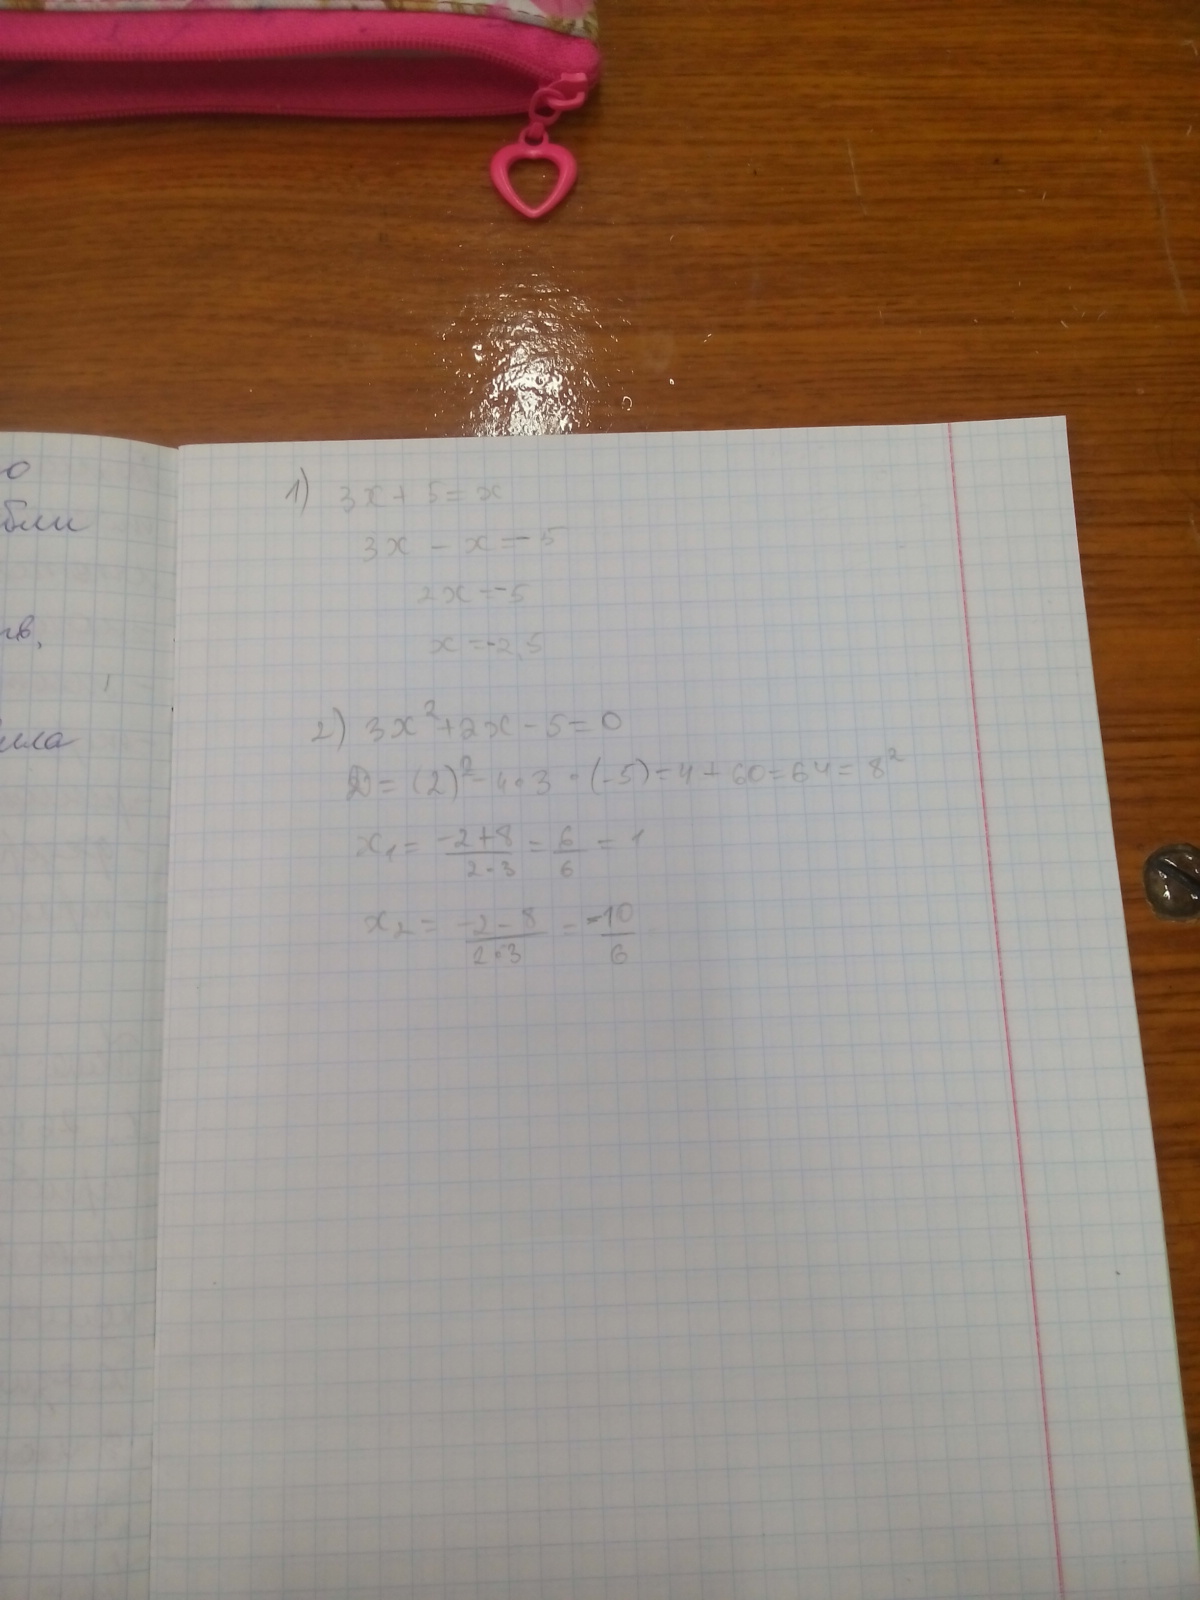 о
бли
тв,
лла
1) 3x + 5 = x
3x - x = -5
2x = -5
x = -2,5
2) 3x² + 2x - 5 = 0
D = (2)² - 4·3·(-5) = 4 + 60 = 64 = 8²
x₁ = (-2+8)/(2·3) = 6/6 = 1
x₂ = (-2-8)/(2·3) = -10/6